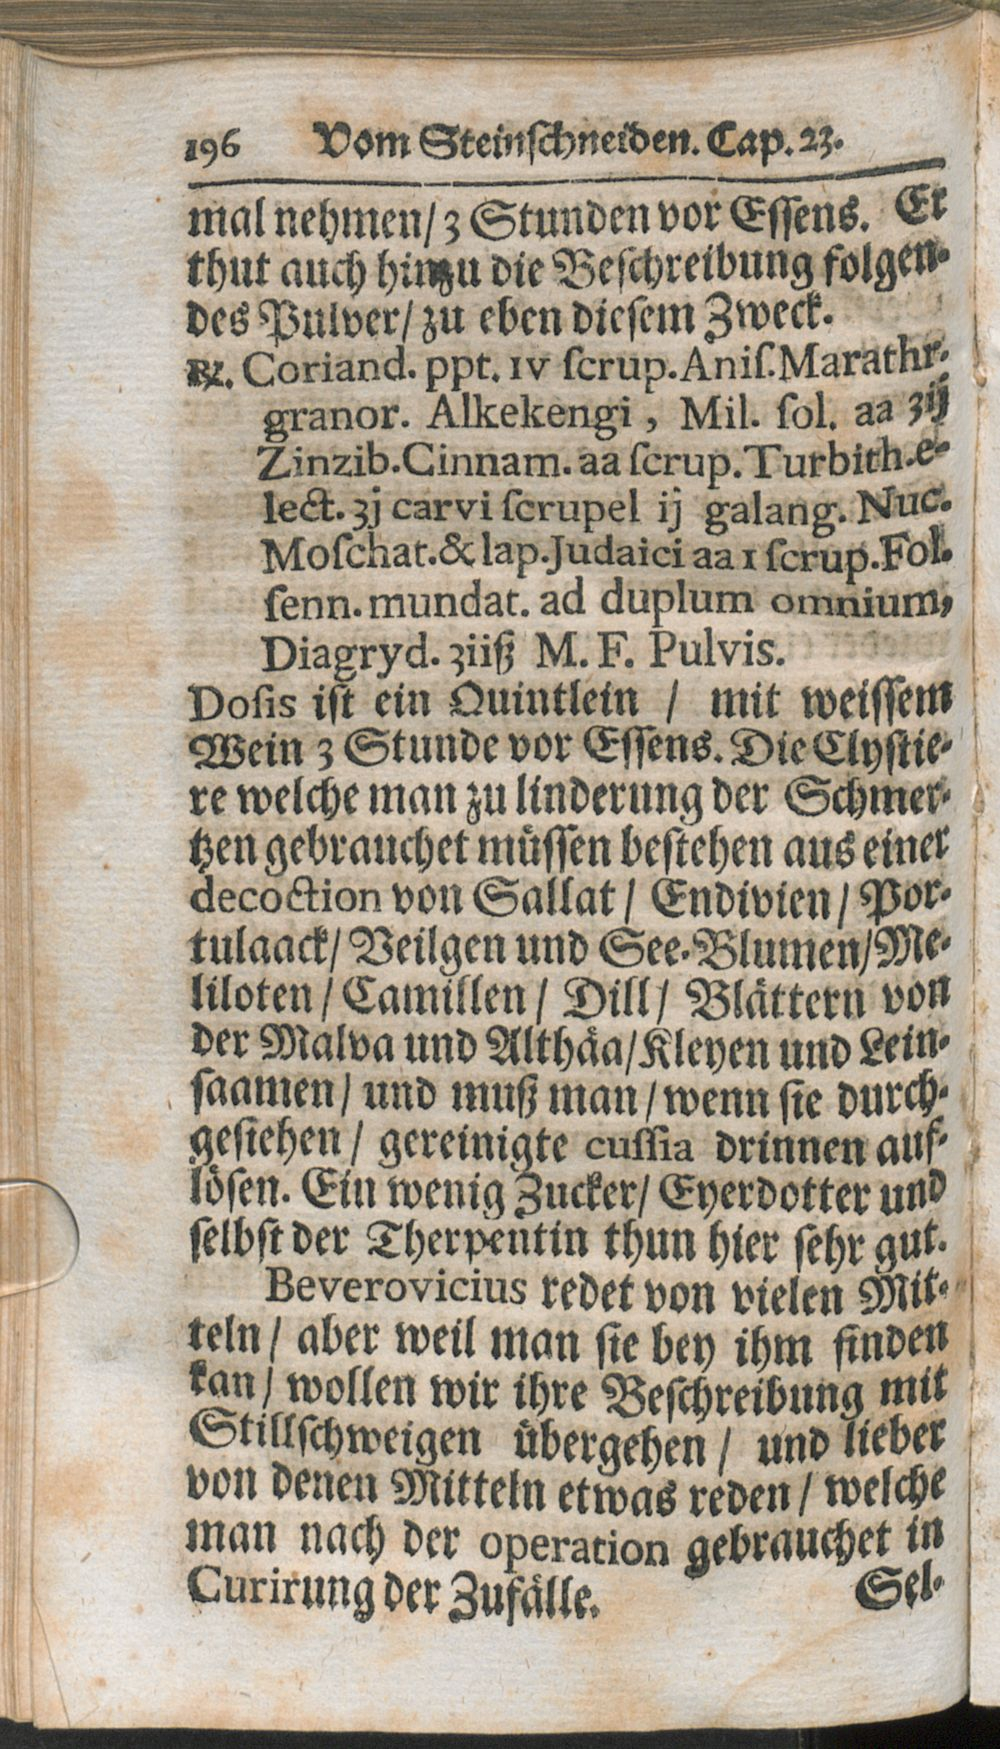 196 Vom Steinschneiden. Cap. 23.
mal nehmen/ 3 Stunden vor Essens. Er
thut auch hinzu die Beschreibung folgen-
des Pulver/ zu eben diesem Zweck.
℞. Coriand. ppt. IV ſcrup. Aniſ. Marathr.
granor. Alkekengi, Mil. ſol. aa ʒij
Zinzib. Cinnam. aa ſcrup. Turbith. e-
lect. ʒj carvi ſcrupel ij galang. Nuc.
Moſchat. & lap. Judaici aa 1 ſcrup. Fol.
ſenn. mundat. ad duplum omnium,
Diagryd. ʒiiß M. F. Pulvis.
Doſis ist ein Quintlein / mit weissem
Wein 3 Stunde vor Essens. Die Clystie-
re welche man zu linderung der Schmer-
tzen gebrauchet müssen bestehen aus einer
decoction von Sallat / Endivien / Por-
tulaack/ Veilgen und See-Blumen/ Me-
liloten / Camillen / Dill / Blättern von
der Malva und Althäa/ Kleyen und Lein-
saamen / und muß man / wenn sie durch-
gesiehen / gereinigte cuſſia drinnen auf-
lösen. Ein wenig Zucker/ Eyerdotter und
selbst der Therpentin thun hier sehr gut.
Beverovicius redet von vielen Mit-
teln / aber weil man sie bey ihm finden
kan / wollen wir ihre Beschreibung mit
Stillschweigen übergehen / und lieber
von denen Mitteln etwas reden / welche
man nach der operation gebrauchet in
Curirung der Zufälle. Sel-